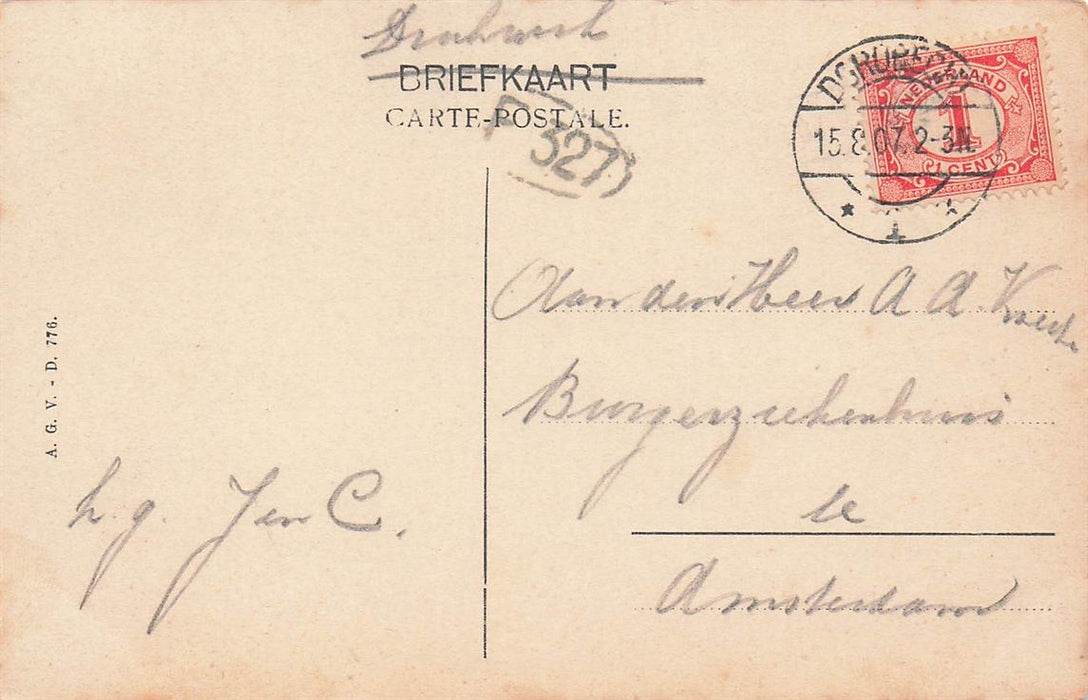 Drukwerk
BRIEFKAART
CARTE-POSTALE.
F 327
NEDERLAND
1
1 CENT
15.8.07. 2-3N.
1
Aan den Heer A A.
Burgerziekenhuis
te
Amsterdam
h. g. J en C.
A. G. V. - D. 776.